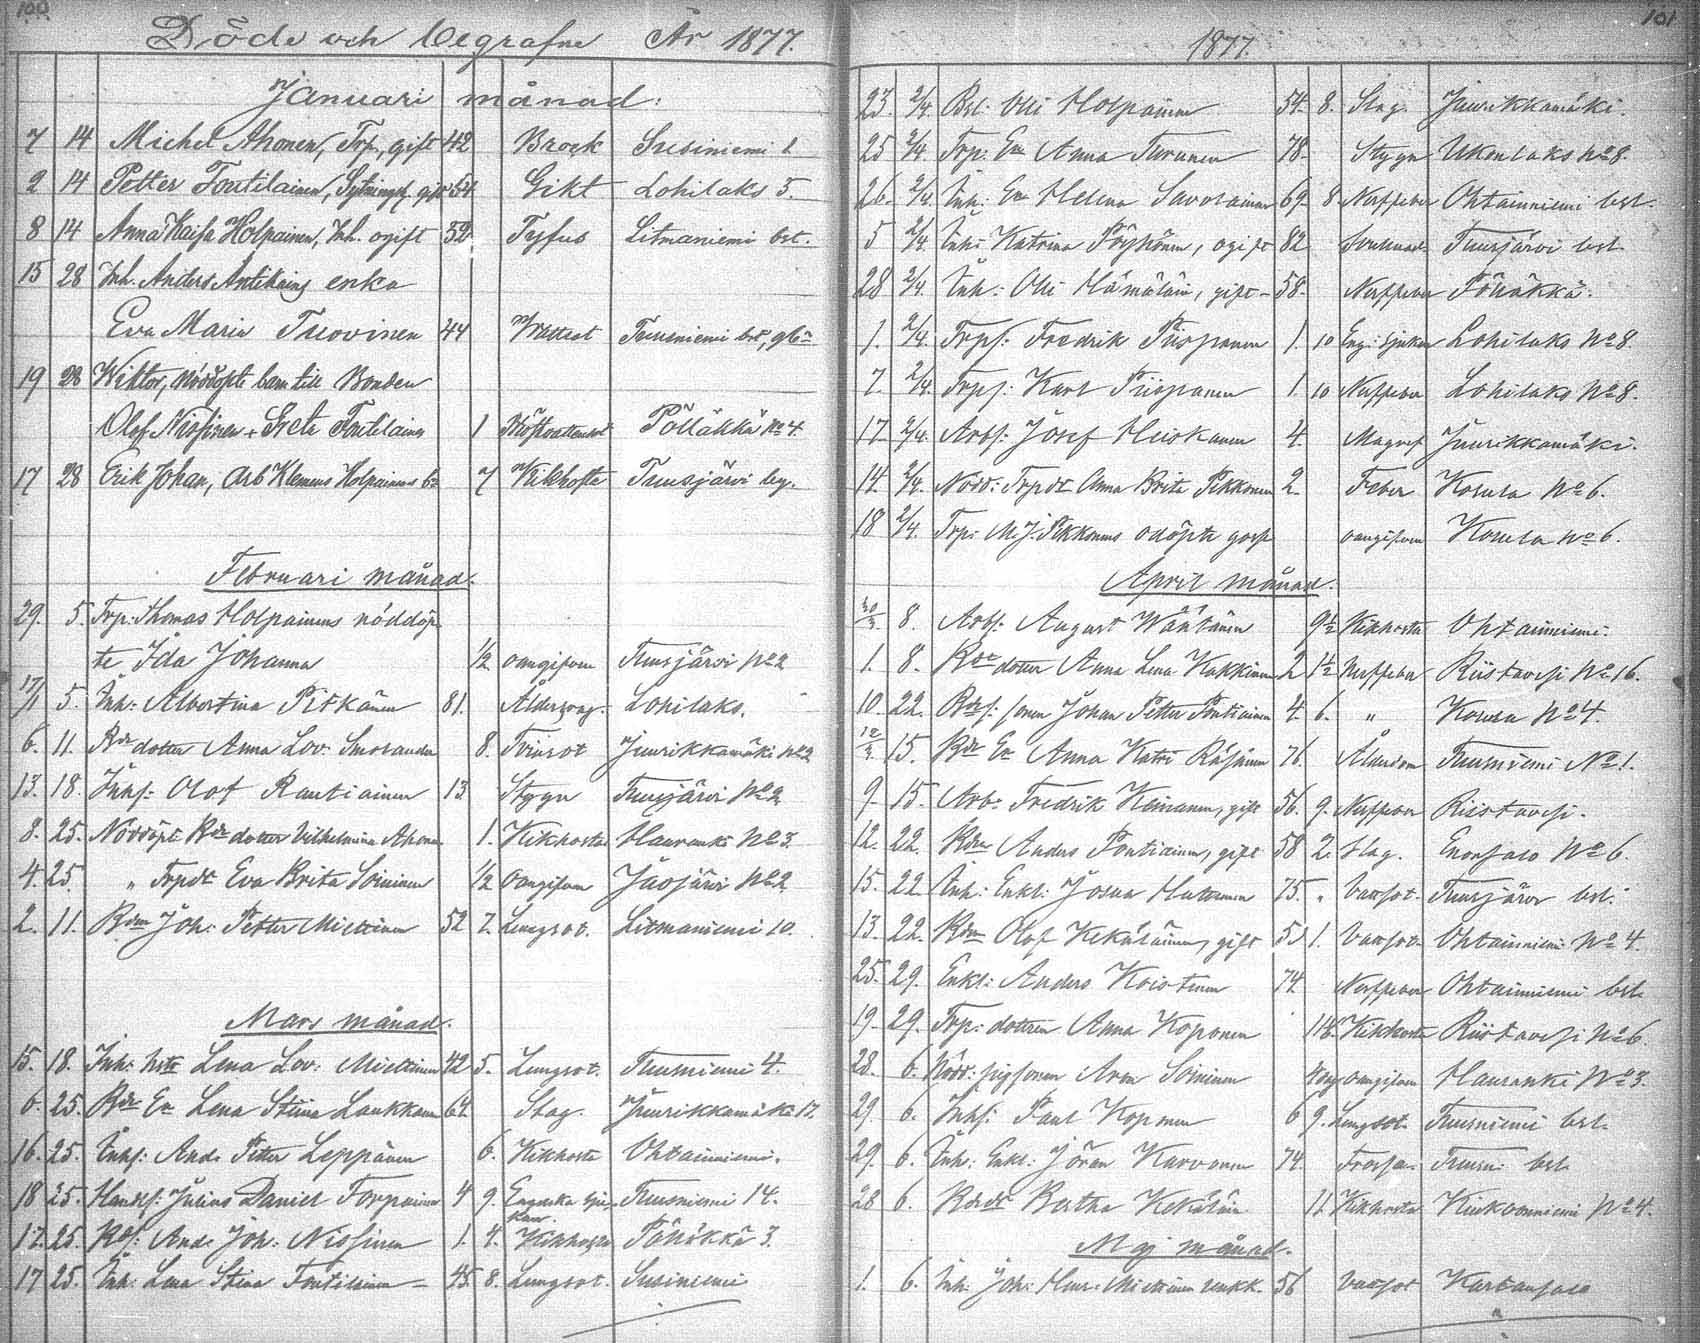 100
Döde och begrafne År 1877.
Januari månad:
7 14 Michel Ahonen, Trp., gift 42 Bråck Susiniemi 1
2 14 Petter Tontilainen, Sytningsk gift 54 Gikt Lohilaks 5.
8 14 Anna Kaisa Holpainen, Inh. ogift 52 Tyfus Litmaniemi bst.
15 28 Inh. Anders Antikains enka
Eva Maria Tuovinen 44 Wattsot Tuusniemi bst,
19 28 Wiktor, Nöddöpte barn till Bonden
Olof Nissinen o. Greta Tontilainen 1 Pölläkkä No 4.
17 28 Erik Johan, Arb Klemens Holpainens 7 Kikhosta Tuusjärvi by.
Februari månad.
29. 5. Trp: Thomas Holpainens nöddöp-
te Ida Johanna 1/2 oangifven Tuusjärvi No 2
17/1 5. Inh: Albertina Pitkänen 81. Ålderdomsv. Lohilaks.
6. 11. Bdr dotter Anna Lov: Smolander 8. Tvinsot Juurikkamäki No 2
13. 18. Inhs: Olof Rautiainen 13. Stygn Tuusjärvi No 2
8. 25. Nöddöpt Bdr dotter Vilhelmina Ahonen 1. Kikhosta Hauranki No 3.
4. 25. " Trpdr Eva Brita Soininen 1/2 Oangifven Jäojärvi No 2
2. 11. Bdn Joh: Petter Miettinen 52 7. Lungsot. Litmaniemi 10.
Mars månad.
15. 18. Inh: hstr Lena Lov: Miettinen 42 5. Lungsot. Tuusniemi 4.
6. 25. Bdr Ea Lena Stina Laukkanen 64. Slag. Juurikkamäki 17.
16. 25. Inhs: And: Petter Leppänen 6. Kikhosta Ohtaanniemi.
18 25. Handls: Julius Daniel Torpainen 4 9. Engelska sju- Tuusniemi 14.
kan
17. 25. Bds: And: Joh: Nissinen 1. 4. Kikhosta Pölläkkä 3.
17 25. Inh: Lena Stina Tontilainen 45. 8. Lungsot. Susiniemi
101
1877.
23. 2/4. Bst: Olli Holpainen 54. 8. Slag. Juurikkamäki.
25 2/4. Trp: Ea Anna Turunen 78. Stygn Ukonlaks No 8.
26. 2/4. Inh: Ea Helena Savolainen 69. 8 Nerffeber Ohtaanniemi bst.
5 2/4. Inh: Katrina Pöyhönen, ogift 82 Tuusjärvi bst.
28 2/4. Inh: Olli Hämäläin, gift 58. Nerffeber Pölläkkä.
1. 2/4. Trps: Fredrik Piispanen 1. 10 Eng: sjukan Lohilaks No 8.
7. 2/4. Trps: Karl Piispanen 1. 10 Nerffeber Lohilaks No 8.
17. 2/4. Arbs: Josef Huiskanen 4. Magref Juurikkamäki.
14. 2/4. Nödd: Trpdr Anna Brita Pekkonen 2. Feber Kosula No 6.
18 2/4. Trp: M: J: Pekkonens odöpta gosse oangifven Kosula No 6.
April månad.
30/3. 8. Arbs: August Wäätäinen 9 1/2 Kikhosta Ohtaanniemi.
1. 8. Bdr dotter Anna Lena Kukkonen 2 1 1/2 Nerffeber Riistavesi No 16.
10. 22. Bdrs: sonen Johan Petter Pentiainen 4. 6. " Kosula No 4.
12/3 15. Bdr Ea Anna Katri Räsänen 76. Ålderdom Tuusniemi No 1.
9. 15. Arb: Fredrik Keinanen, gift 56. 9. Nerffeber Riistavesi.
12. 22. Bdn Anders Pentiainen, gift 58 2. Slag. Enonsalo No 6.
15. 22. Inh: Enkl: Josua Huttunen 75. " Vattsot. Tuusjärvi bst.
13. 22. Bdn Olof Kekäläinen, gift 53 1. Vattsot. Ohtaanniemi No 4.
25. 29. Enkl: Anders Koistinen 74. Nerffeber Ohtaanniemi bst.
19. 29. Trp: dottren Anna Koponen Kikhosta Riistavesi No 6.
28. 6. Nödd: pigsonen Aron Soininen oangifven Hauranki No 3.
29. 6. Inhs: Paul Koponen 6 9. Lungsot. Tuusniemi bst.
29. 6. Inh: Enkl: Jöran Karvonen 74. Frossa. Tuusn: bst.
28 6. Bdrdr Bertha Kekäläin 11. Kikhosta Kiukoonniemi No 4.
Maj månad.
1. 6. Inh: Joh: Hnr: Miettinen enkl. 56 Vattsot Kartansalo